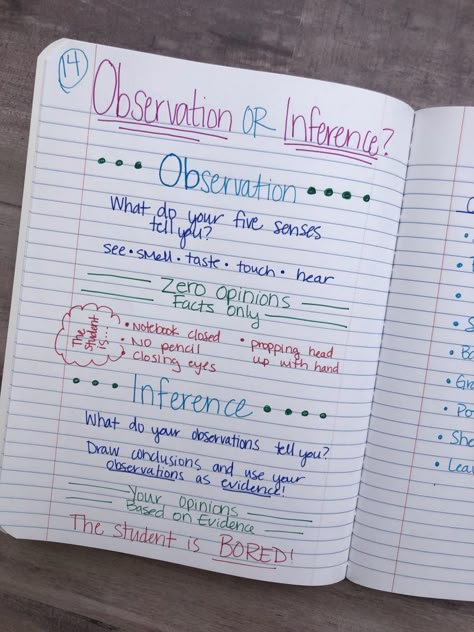 14
Observation OR Inference?
Observation
What do your five senses
tell you?
see • smell • taste • touch • hear
Zero Opinions
Facts only
The
student
is...
• Notebook closed
• NO pencil
• closing eyes
• propping head
up with hand
Inference
What do your observations tell you?
Draw conclusions and use your
observations as evidence!
Your opinions
Based on Evidence
The student is BORED!